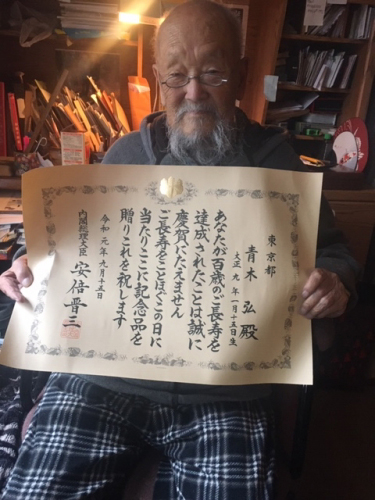 東京都
青木 弘 殿
大正九年一月十五日生
あなたが百歳のご長寿を
達成されたことは誠に
慶賀にたえません
ご長寿をことほぐこの日に
当たりここに記念品を
贈りこれを祝します
令和元年九月十五日
内閣総理大臣 安倍晋三